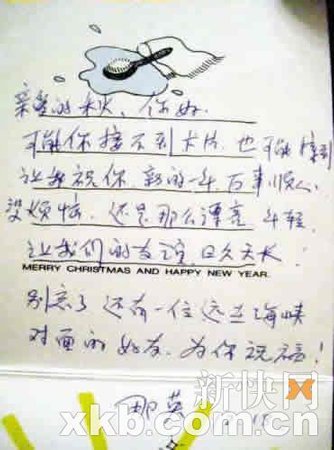 亲爱的秋秋,你好.
可能你接不到卡片,也可能接到
让我祝你新的一年,万事顺心
没烦恼,还是那么漂亮,年轻
让我们的友谊,日久天长!
MERRY CHRISTMAS AND HAPPY NEW YEAR.
别忘了还有一位远在海峡
对面的好友,为你祝福!
那英
新快网
xkb.com.cn